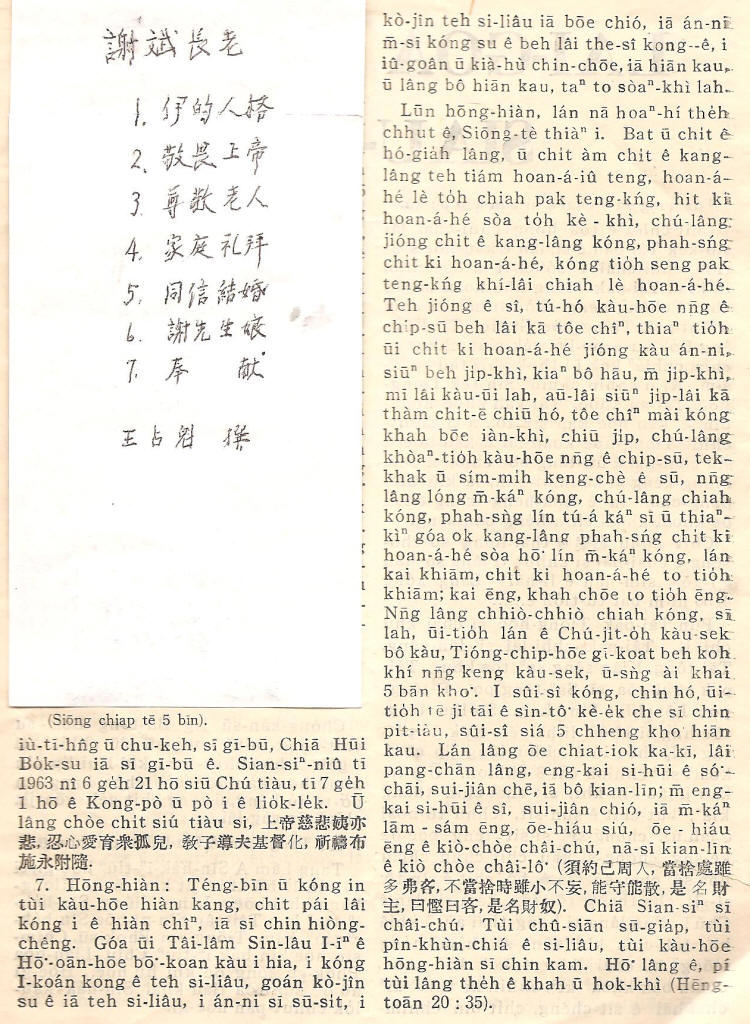 謝斌長老
1. 伊的人格
2. 敬畏上帝
3. 尊敬老人
4. 家庭礼拜
5. 同信結婚
6. 謝先生娘
7. 奉 献
王占魁 撰
(Siōng chiap tē 5 bīn).
iù-tī-hn̂g ū chu-keh, sī gī-bū, Chiā Hūi
Bo̍k-su iā sī gī-bū ê. Sian-siⁿ-niû tī
1963 nî 6 ge̍h 21 hō siū Chú tiàu, tī 7 ge̍h
1 hō ê Kong-pò ū pò i ê lio̍k-le̍k. Ū
lâng chòe chit siú tiàu si, 上帝慈悲姨亦
悲, 忍心愛育衆孤兒, 敎子導夫基督化, 祈禱布
施永附隨.
7. Hōng-hiàn: Téng-bīn ū kóng in
tùi kàu-hōe hiàn kang, chit pái lâi
kóng i ê hiàn chîⁿ, iā sī chin hiòng-
chêng. Góa ūi Tâi-lâm Sin-lâu I-īⁿ ê
Hō͘-oān-hōe bō͘-koan kàu i hia, i kóng
I-koán kong ê teh si-liâu, goán kò-jîn
su ê iā teh si-liâu, i án-ni sī sū-si̍t, i
kò-jîn teh si-liâu iā bōe chió, iā án-ni
m̄-sī kóng su ê beh lâi the-sî kong--ê, i
iû-goân ū kià-hù chin-chōe, iā hiān kau,
ū lâng bô hiān kau, taⁿ to sòaⁿ-khì lah.
Lūn hōng-hiàn, lán nā hoaⁿ-hí the̍h
chhut ê, Siōng-tè thiàⁿ i. Bat ū chi̍t ê
hó-gia̍h lâng, ū chi̍t àm chi̍t ê kang-
lâng teh tiám hoan-á-iû teng, hoan-á-
hé lè to̍h chiah pak teng-kńg, hit ki
hoan-á-hé sòa to̍h kè-khì, chú-lâng
jióng chit ê kang-lâng kóng, phah-sńg
chi̍t ki hoan-á-hé, kóng tio̍h seng pak
teng-kńg khí-lâi chiah lè hoan-á-hé.
Teh jióng ê sî, tú-hó kàu-hōe nn̄g ê
chip-sū beh lâi kā tôe chîⁿ, thiaⁿ tio̍h
ūi chi̍t ki hoan-á-hé jióng kàu án-ni,
siūⁿ beh ji̍p-khì, kiaⁿ bô hāu, m̄ ji̍p-khì,
mī lâi kàu-ūi lah, aū-lâi siūⁿ ji̍p-lâi kā
thàm chi̍t-ē chiū hó, tôe chîⁿ mài kóng
khah bōe iàn-khì, chiū ji̍p, chú-lâng
khòaⁿ-tio̍h kàu-hōe nn̄g ê chip-sū, tek-
khak ū sím-mih keng-chè ê sū, nn̄g
lâng lóng m̄-káⁿ kóng, chú-lâng chiah
kóng, phah-sǹg lín tú-á káⁿ sī ū thiaⁿ-
kìⁿ góa ok kang-lâng phah-sńg chi̍t ki
hoan-á-hé sòa hō͘ lín m̄-káⁿ kóng, lán
kai khiām, chi̍t ki hoan-á-hé to tio̍h
khiām; kai ēng, khah chōe to tio̍h ēng.
Nn̄g lâng chhiò-chhiò chiah kóng, sī
lah, ūi-tio̍h lán ê Chú-ji̍t-o̍h kàu-sek
bô kàu, Tióng-chip-hōe gī-koat beh koh
khí nn̄g keng kàu-sek, ū-sǹg ài khai
5 bān kho͘. I sûi-sî kóng, chin hó, ūi-
tio̍h tē jī tāi ê sìn-tô͘ kè-e̍k che sī chin
pit-iàu, sûi-sî siá 5 chheng kho͘ hiān
kau. Lán lâng ōe chiat-iok ka-kī, lâi
pang-chān lâng, eng-kai si-hūi ê só͘-
chāi, sui-jiân chē, iā bô kian-līn; m̄ eng-
kai si-hūi ê sî, sui-jiân chió, iā m̄-káⁿ
lām-sám ēng, ōe-hiáu siú, ōe-hiáu
ēng ê kiò-chòe châi-chú, nā-sī kian-līn
ê kiò chòe châi-lô͘ (須約己周人, 當捨處雖
多弗吝, 不當捨時雖小不妄, 能守能散, 是名財
主, 曰慳曰吝, 是名財奴). Chiā Sian-siⁿ sī
châi-chú. Tùi chû-siān sū-gia̍p, tùi
pîn-khùn-chiá ê si-liâu, tùi kàu-hōe
hōng-hiàn sī chin kam. Hō͘ lâng ê, pí
tùi lâng the̍h ê khah ū hok-khì (Hēng-
toān 20 : 35).